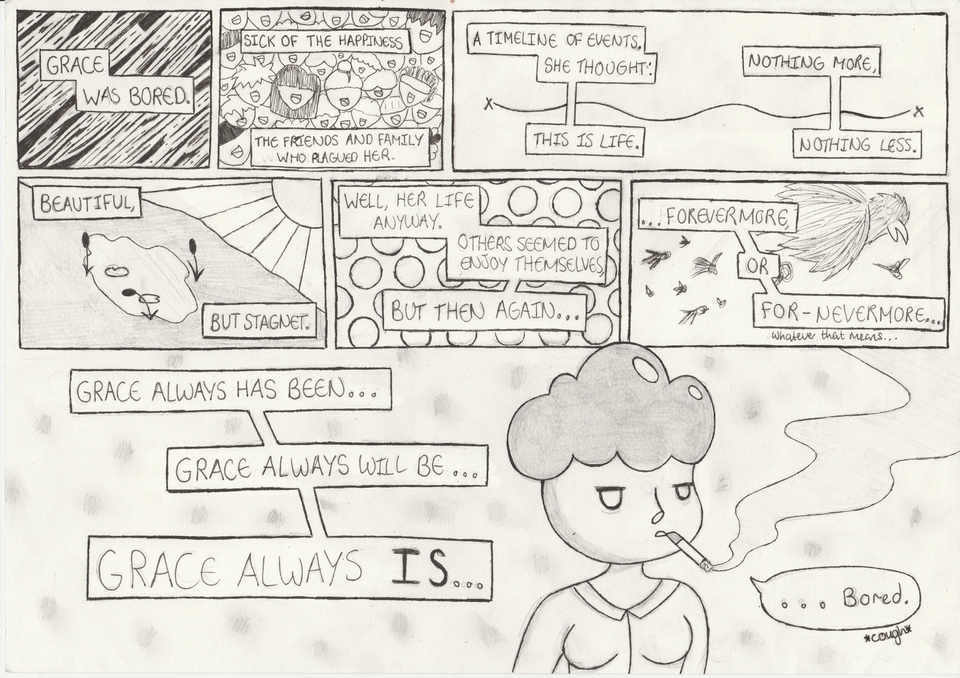 GRACE
WAS BORED.
SICK OF THE HAPPINESS
THE FRIENDS AND FAMILY
WHO PLAGUED HER.
A TIMELINE OF EVENTS.
SHE THOUGHT:
THIS IS LIFE.
NOTHING MORE,
NOTHING LESS.
BEAUTIFUL,
BUT STAGNET.
WELL, HER LIFE
ANYWAY.
OTHERS SEEMED TO
ENJOY THEMSELVES
BUT THEN AGAIN...
...FOREVERMORE,
OR
FOR-NEVERMORE...
whatever that means...
GRACE ALWAYS HAS BEEN...
GRACE ALWAYS WILL BE...
GRACE ALWAYS IS...
... Bored.
*cough*